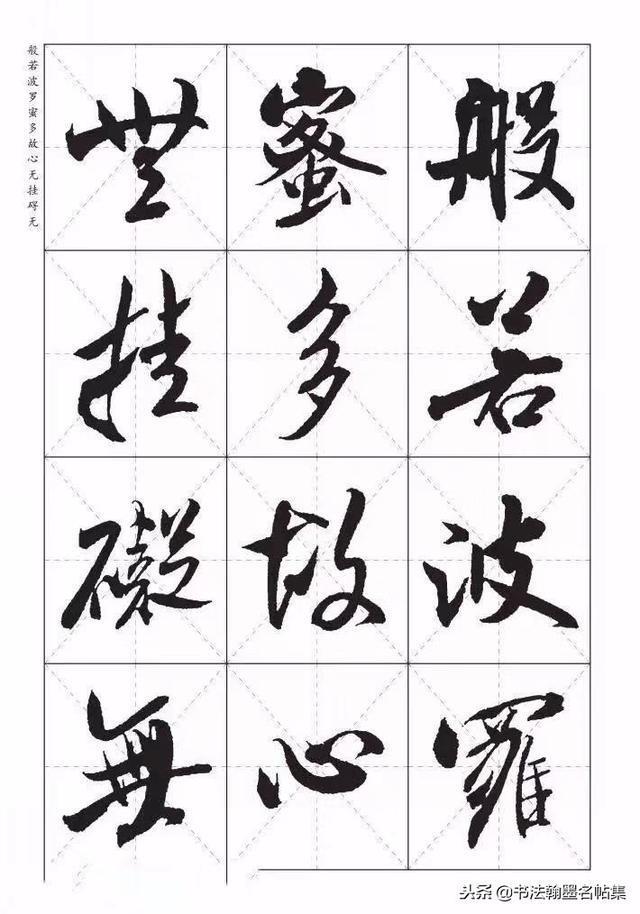 般若波罗蜜多故心无挂碍无
般若波羅
蜜多故心
無挂礙無
头条 @书法翰墨名帖集